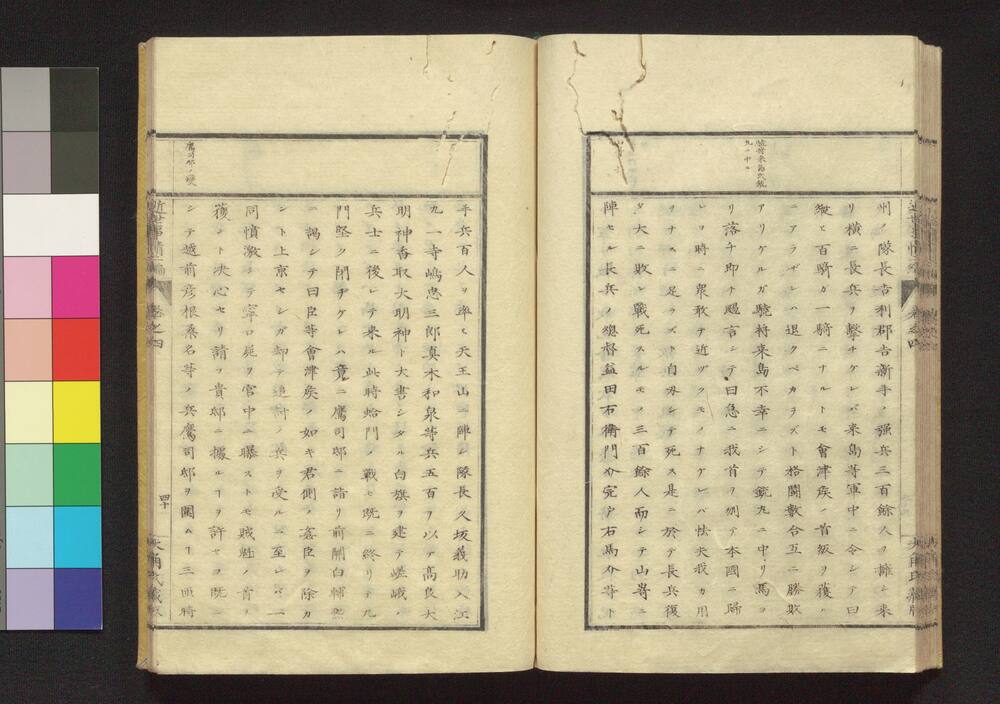 驍將来島氏銃
丸ニ中ル
州ノ隊長吉利郡吉新手ノ强兵三百餘人ヲ擁シ来
リ横ニ長兵ヲ擊チケレバ来島等軍中ニ令シテ曰
縦ヒ百騎ガ一騎ニナルトモ會津矦ノ首級ヲ獲ル
ニアラザレハ退クベカラズト格鬪數合互ニ勝敗
アリケルガ驍將来島不幸ニシテ銃丸ニ中リ馬ヨ
リ落チ即チ颺言シテ曰急ニ我首ヲ刎テ本國ニ歸
レヨ時ニ衆敢テ近ヅクモノナケレバ怯夫我カ用
ヲナスニ足ラズト自刃シテ死ス是ニ於テ長兵復
タ大ニ敗レ戰死スルモノ三百餘人而シテ山嵜ニ
陣セル長兵ノ總督益田右衞門介宍戸右馬介等ト
手兵百人ヲ率ヒ天王山ニ陣シ隊長久坂義助入江
九一寺嶋忠三郎真木和泉等兵五百ヲ以テ高良大
明神香取大明神ト大書シタル白旗ヲ建テ嵯峨ノ
兵士ニ後レテ来ル此時蛤門ノ戰モ既ニ終リテ九
門堅ク閉ヂケレハ竟ニ鷹司邸ニ詣リ前關白輔凞
ニ謁シテ曰臣等會津矦ノ如キ君側ノ姦臣ヲ除カ
ント上京セシガ却テ追討ノ兵ヲ受ルニ至レバ一
同憤激シテ寧ロ屍ヲ宮中ニ曝ストモ賊魁ノ首ヲ
獲ント决心セリ請フ貴邸ニ據ルヿヲ許セヨ既ニ
シテ越前彦根桑名等ノ兵鷹司邸ヲ圍ムヿ三匝時
鷹司邸ノ變
近世事情二編
卷之四
四十
大角氏藏版